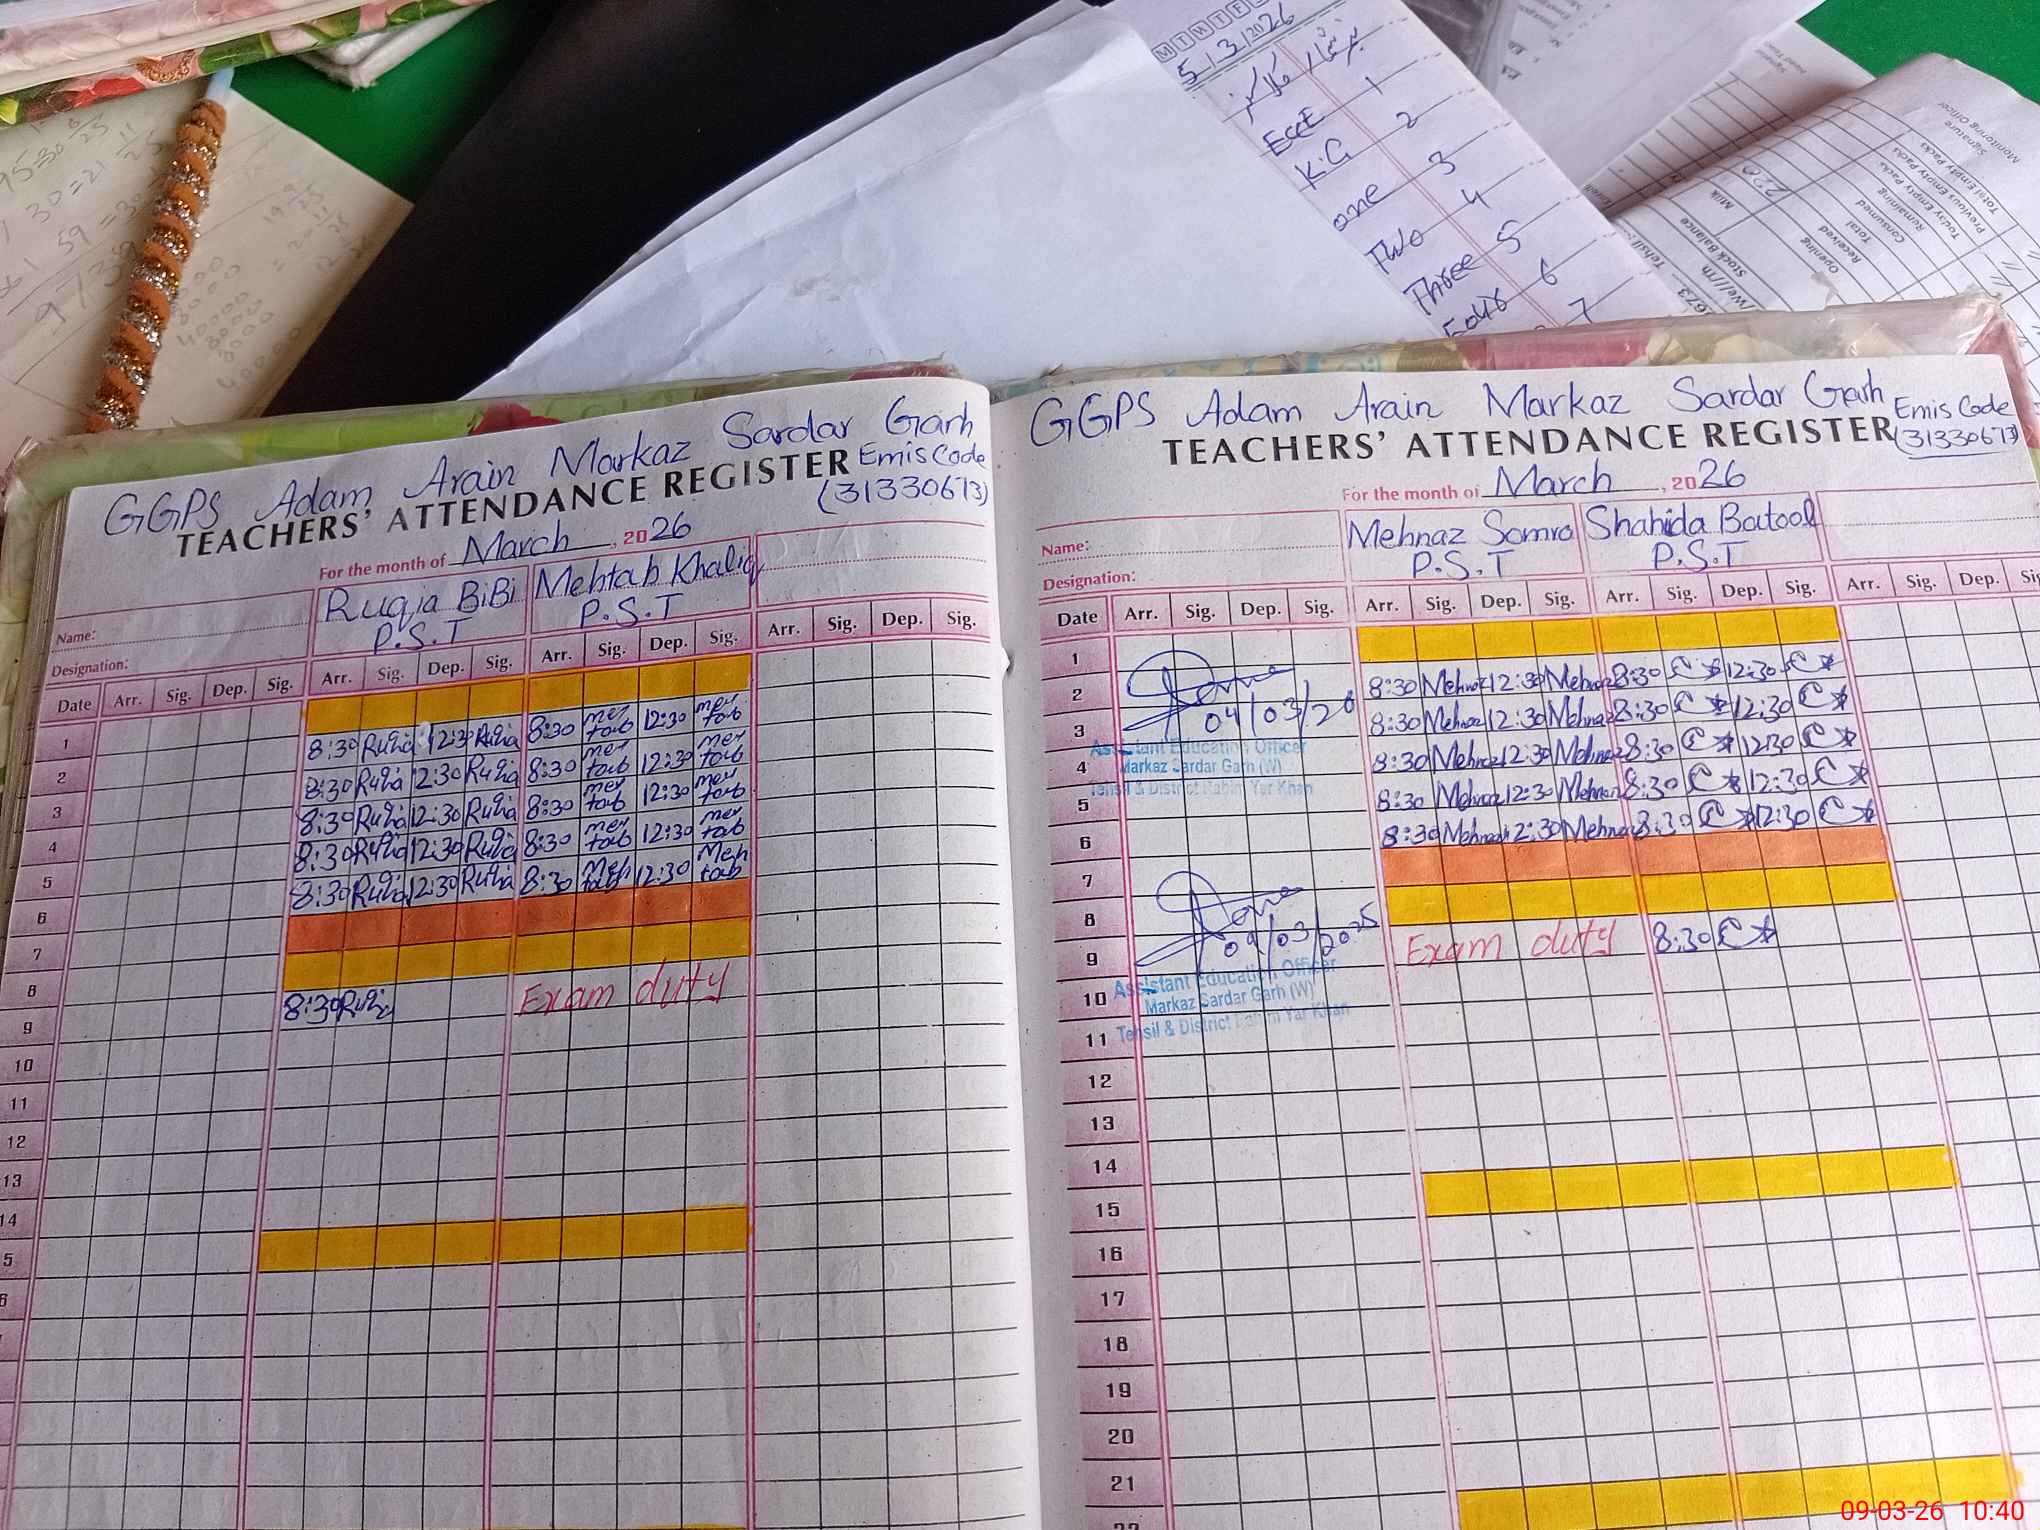 M T W T F S
5/3/2026
نمبر شمار کلاسز
Ecce 1
K.G 2
one 3
Two 4
Three 5
Four 6
7
Monitoring Officer
Signature
Total Empty Packs
Previous Empty Packs
Today Empty Packs
Remaining
Consumed
Total
Received
Opening
Milk 220
Stock Balance
GGPS Adam Arain Markaz Sardar Garh
TEACHERS' ATTENDANCE REGISTER Emis Code
(31330673)
For the month of March, 2026
Name: Ruqia BiBi Mehtab Khaliq
Designation: P.S.T P.S.T
Date Arr. Sig. Dep. Sig. Arr. Sig. Dep. Sig. Arr. Sig. Dep. Sig. Arr. Sig. Dep. Sig.
1
2 8:30 Ruqia 12:30 Ruqia 8:30 meh tab 12:30 meh tab
3 8:30 Ruqia 12:30 Ruqia 8:30 meh tab 12:30 meh tab
4 8:30 Ruqia 12:30 Ruqia 8:30 meh tab 12:30 meh tab
5 8:30 Ruqia 12:30 Ruqia 8:30 meh tab 12:30 meh tab
6 8:30 Ruqia 12:30 Ruqia 8:30 Meh tab 12:30 Meh tab
7
8
9 8:30 Ruqia Exam duty
10
11
12
13
14
5
GGPS Adam Arain Markaz Sardar Garh Emis Code
TEACHERS' ATTENDANCE REGISTER (31330673)
For the month of March, 2026
Name: Mehnaz Somro Shahida Batool
Designation: P.S.T P.S.T
Date Arr. Sig. Dep. Sig. Arr. Sig. Dep. Sig. Arr. Sig. Dep. Sig. Arr. Sig. Dep.
1
2 8:30 Mehnaz 12:30 Mehnaz 8:30 12:30
3 04/03/26 8:30 Mehnaz 12:30 Mehnaz 8:30 12:30
Assistant Education Officer
4 8:30 Mehnaz 12:30 Mehnaz 8:30 12:30
Markaz Sardar Garh (W)
Tehsil & District Rahim Yar Khan
5 8:30 Mehnaz 12:30 Mehnaz 8:30 12:30
6 8:30 Mehnaz 12:30 Mehnaz 8:30 12:30
7
8
9 09/03/2025 Exam duty 8:30
Assistant Education Officer
10 Markaz Sardar Garh (W)
11 Tehsil & District Rahim Yar Khan
12
13
14
15
16
17
18
19
20
21
22
09-03-26 10:40